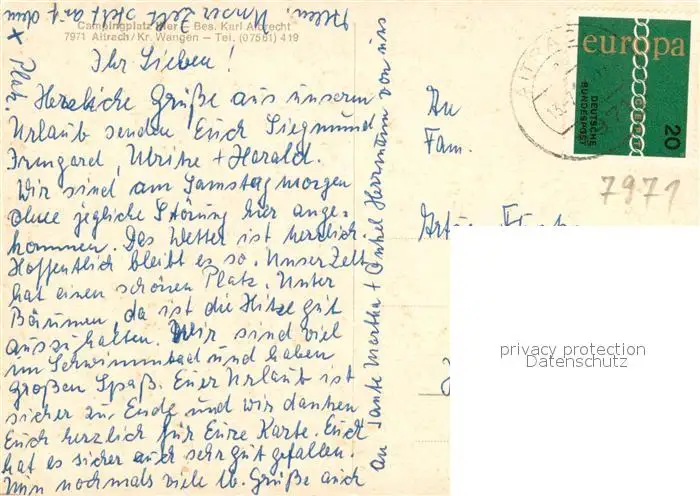 Campingplatz Iller - Bes. Karl Albrecht
7971 Aitrach/Kr. Wangen - Tel. (07561) 419
Ihr Lieben!
Herzliche Grüße aus unserem
Urlaub senden Euch Siegmund
Irmgard, Ulrike + Harald.
Wir sind am Samstagmorgen
ohne jegliche Störung hier ange-
kommen. Das Wetter ist herrlich.
Hoffentlich bleibt es so. Unser Zelt
hat einen schönen Platz. Unter
Bäumen, da ist die Hitze gut
auszuhalten. Wir sind viel
im Schwimmbad und haben
großen Spaß. Euer Urlaub ist
sicher zu Ende und wir danken
Euch herzlich für Eure Karte. Euch
hat es sicher auch sehr gut gefallen.
Nun nochmals viele lb. Grüße auch
An Tante Martha + Onkel Herrmann von uns
Allen. Unser Zelt steht auf dem
x Platz.
An
Fam.
europa
DEUTSCHE
BUNDESPOST
20
AITRA
7971
privacy protection
Datenschutz